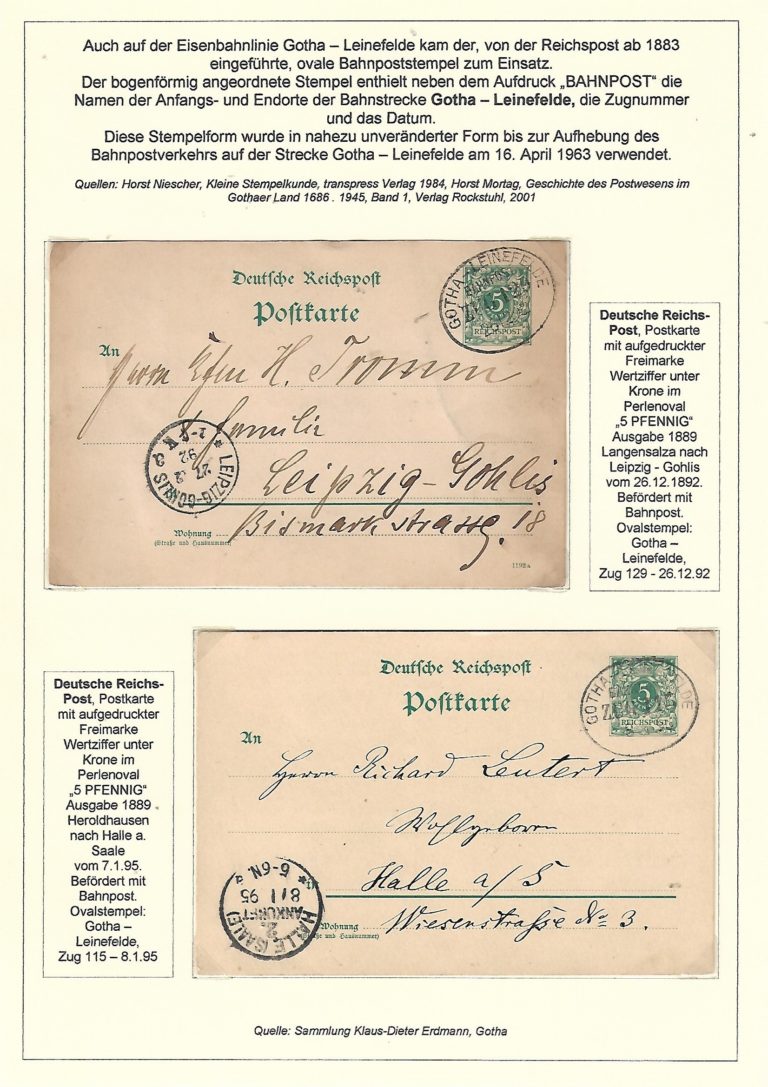 Auch auf der Eisenbahnlinie Gotha – Leinefelde kam der, von der Reichspost ab 1883
eingeführte, ovale Bahnpoststempel zum Einsatz.
Der bogenförmig angeordnete Stempel enthielt neben dem Aufdruck „BAHNPOST“ die
Namen der Anfangs- und Endorte der Bahnstrecke Gotha – Leinefelde, die Zugnummer
und das Datum.
Diese Stempelform wurde in nahezu unveränderter Form bis zur Aufhebung des
Bahnpostverkehrs auf der Strecke Gotha – Leinefelde am 16. April 1963 verwendet.
Quellen: Horst Niescher, Kleine Stempelkunde, transpress Verlag 1984, Horst Mortag, Geschichte des Postwesens im
Gothaer Land 1686 . 1945, Band 1, Verlag Rockstuhl, 2001
Deutsche Reichspost
Postkarte
GOTHA LEINEFELDE
BAHNPOST
5
REICHSPOST
An
Herrn H. Tromm
Familie
Leipzig-Gohlis
Bismarkstrasse, 18
Wohnung
(Straße und Hausnummer)
1192a
LEIPZIG-GOHLIS
27
92
Deutsche Reichs-
Post, Postkarte
mit aufgedruckter
Freimarke
Wertziffer unter
Krone im
Perlenoval
„5 PFENNIG“
Ausgabe 1889
Langensalza nach
Leipzig - Gohlis
vom 26.12.1892.
Befördert mit
Bahnpost.
Ovalstempel:
Gotha –
Leinefelde,
Zug 129 - 26.12.92
Deutsche Reichs-
Post, Postkarte
mit aufgedruckter
Freimarke
Wertziffer unter
Krone im
Perlenoval
„5 PFENNIG“
Ausgabe 1889
Heroldhausen
nach Halle a.
Saale
vom 7.1.95.
Befördert mit
Bahnpost.
Ovalstempel:
Gotha –
Leinefelde,
Zug 115 – 8.1.95
Deutsche Reichspost
Postkarte
GOTHA
5
REICHSPOST
An
Herrn Richard Leutert
Wohlgeboren
Halle a/S
Wiesenstraße No 3.
Wohnung
und Hausnummer)
HALLE (SAALE)
2
ANKUNFT
8 1 95
5-6N.
Quelle: Sammlung Klaus-Dieter Erdmann, Gotha